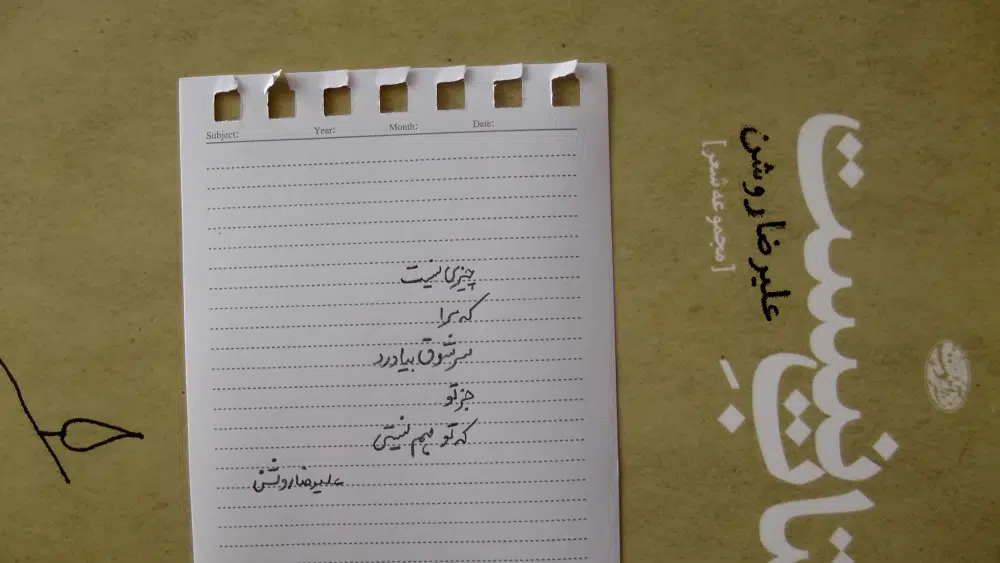 Subject: Year: Month: Date:
چیزی نیست
که مرا
سر شوق بیاورد
جز تو
که تو هم نیستی
علیرضا روشن
علیرضا روشن
[مجموعه شعر]
نیست